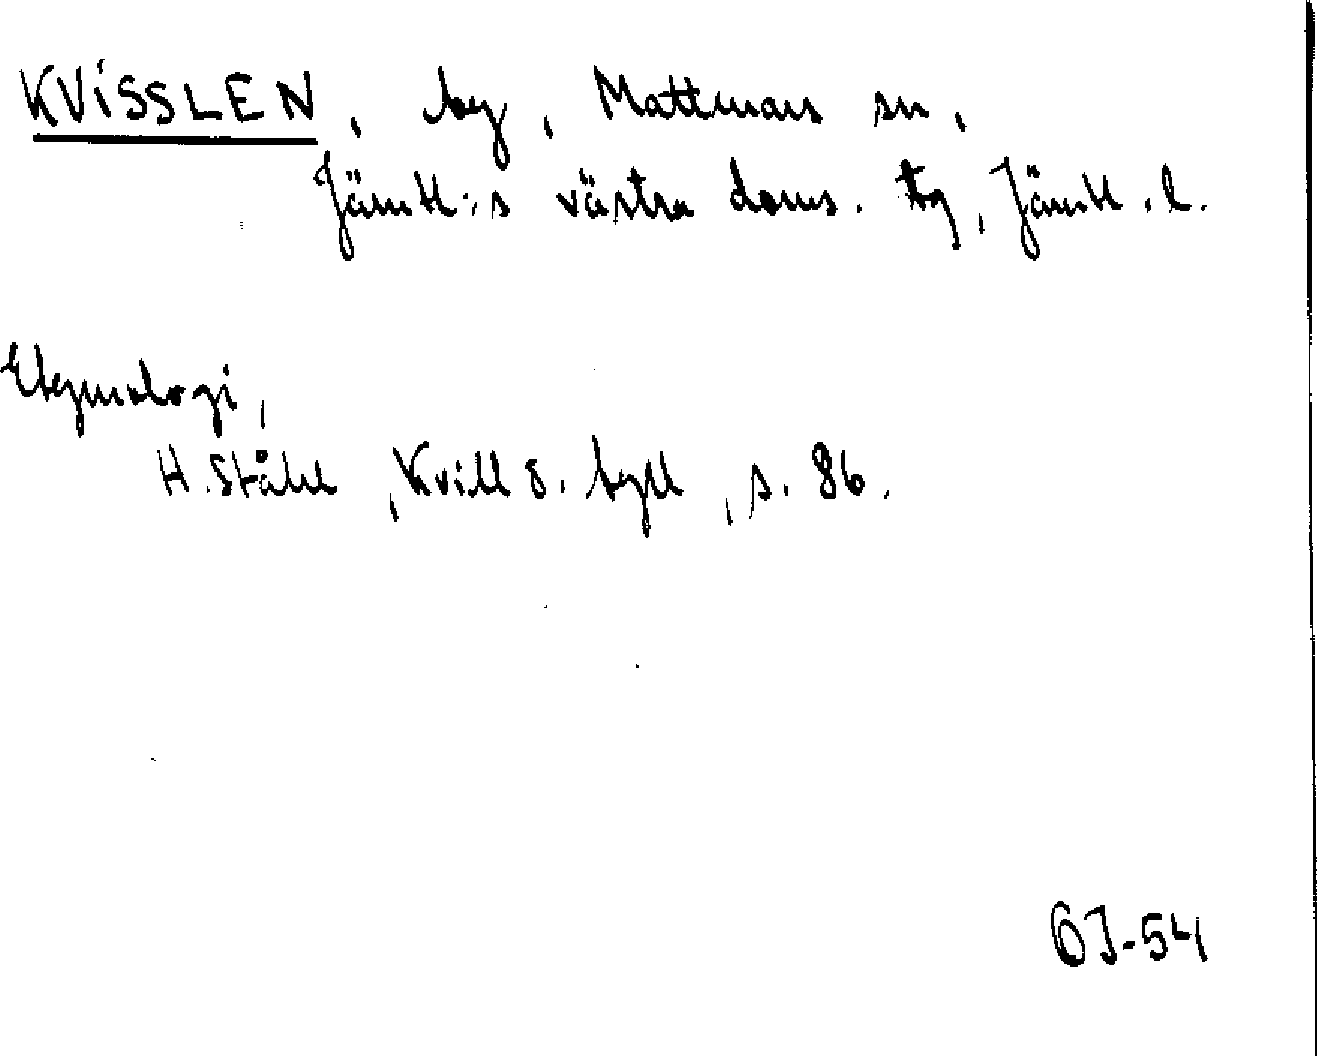 KVISSLEN, by, Mattmars sn,
Jämtl:s västra doms. tg, Jämtl. l.
Etymologi,
H. Ståhl, Kvill o. tyll, s. 86.
OJ-54